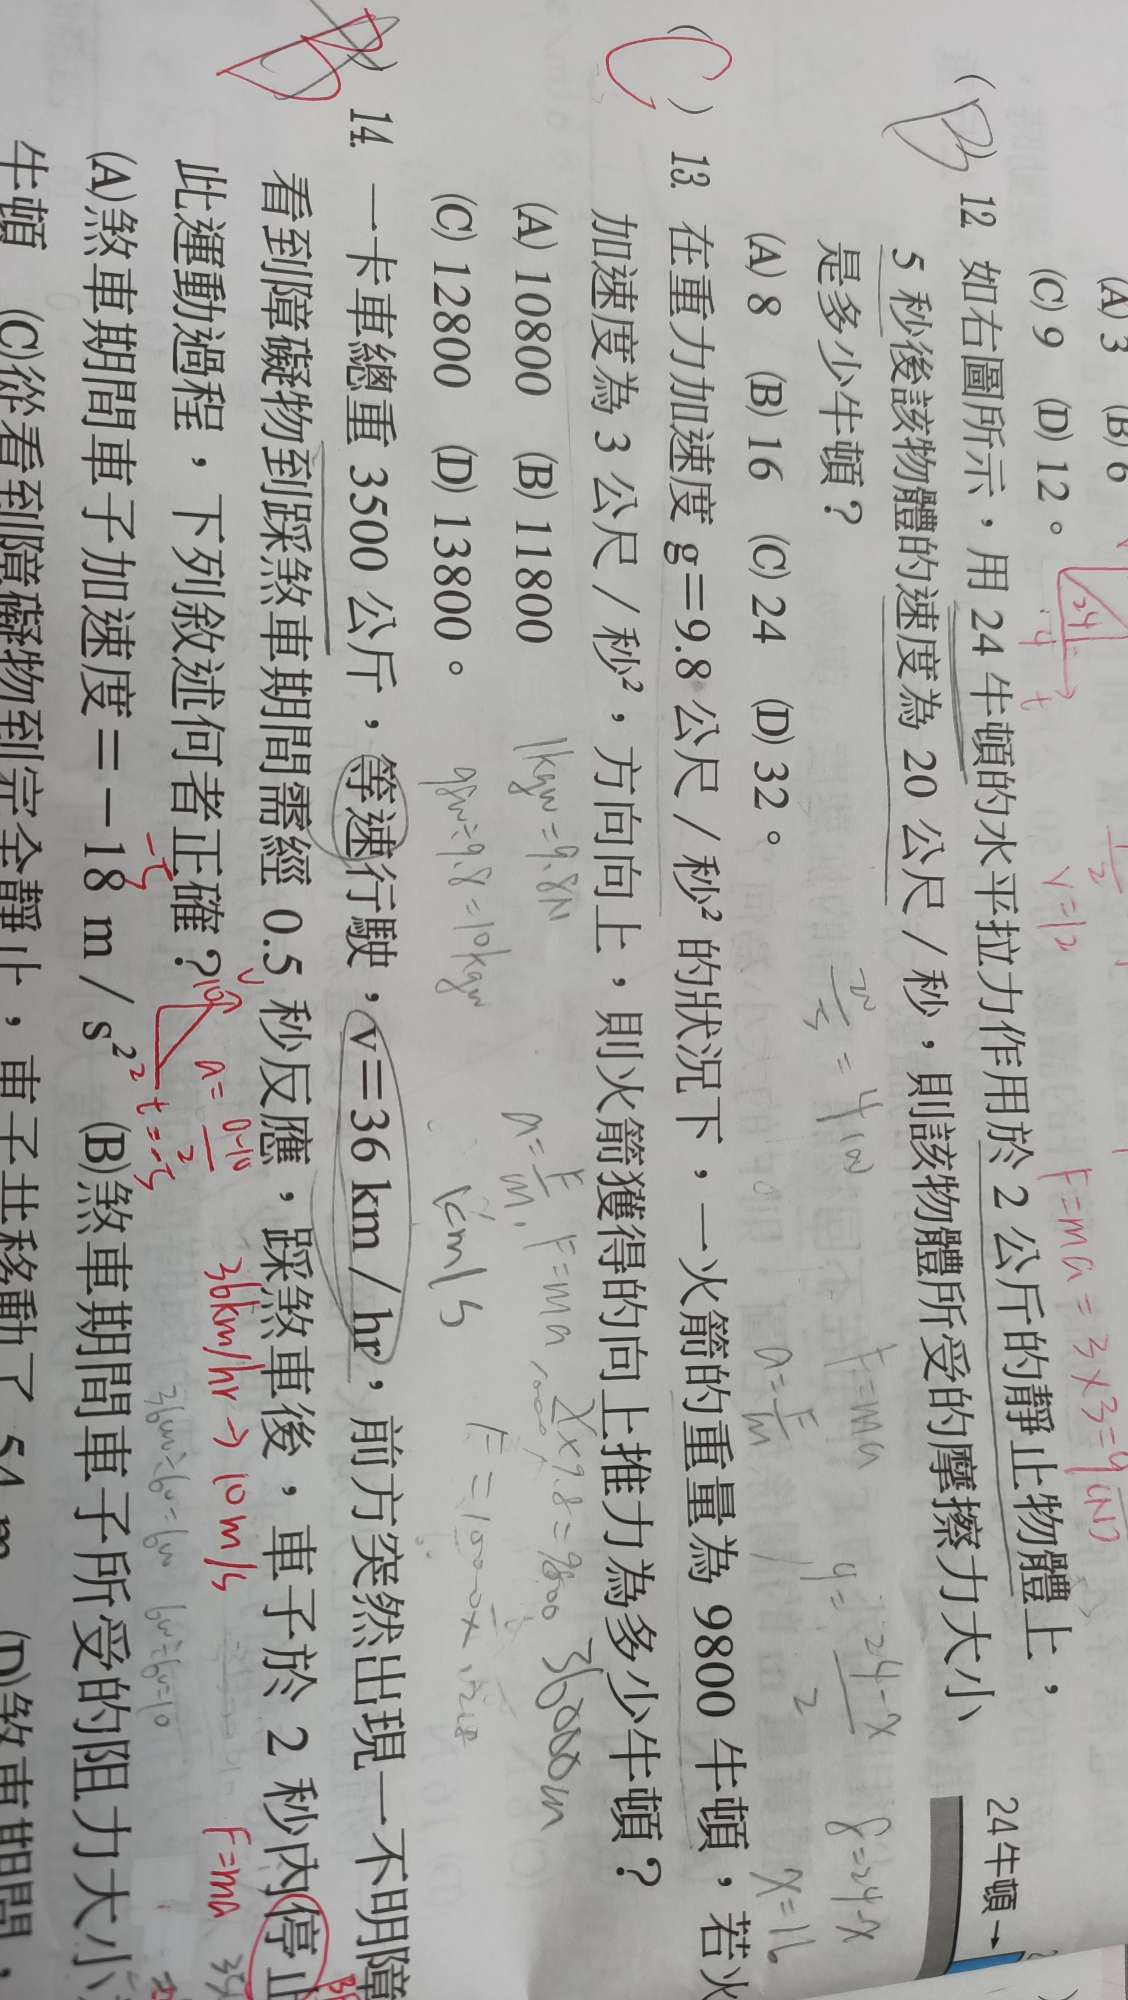 (A) 3 (B) 6
(C) 9 (D) 12。
24
4
t
v=12
F=ma=3×3=9(N)
(B) 12. 如右圖所示，用 24 牛頓的水平拉力作用於 2 公斤的靜止物體上，
5 秒後該物體的速度為 20 公尺／秒，則該物體所受的摩擦力大小
是多少牛頓？
24牛頓→
(A) 8 (B) 16 (C) 24 (D) 32。
F=ma
a=F/m
4=24-x/2
8=24-x
x=16
(C) 13. 在重力加速度 g＝9.8 公尺／秒² 的狀況下，一火箭的重量為 9800 牛頓，若火
加速度為 3 公尺／秒²，方向向上，則火箭獲得的向上推力為多少牛頓？
(A) 10800 (B) 11800
(C) 12800 (D) 13800。
1kgw=9.8N
a=F/m, F=ma
36000m
(B) 14. 一卡車總重 3500 公斤，等速行駛，v＝36 km／hr，前方突然出現一不明障
看到障礙物到踩煞車期間需經 0.5 秒反應，踩煞車後，車子於 2 秒內停止
此運動過程，下列敘述何者正確？
-5
10
v
2
t
a=0-10/2
=-5
36km/hr→10m/s
F=ma
(A)煞車期間車子加速度＝－18 m／s² (B)煞車期間車子所受的阻力大小
牛頓 (C)從看到障礙物到完全靜止，車子共移動了 54 m (D)煞車期間，